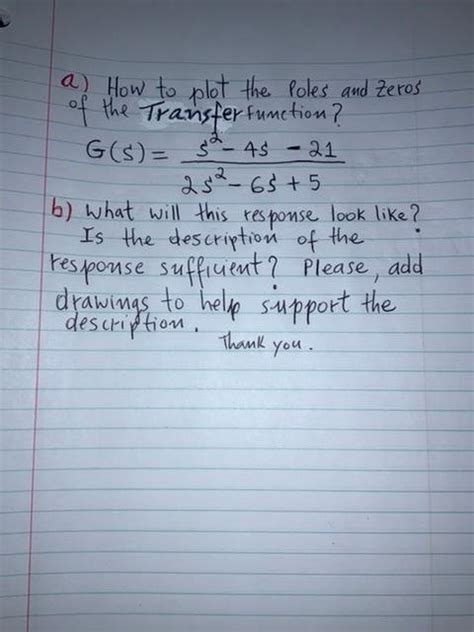 a) How to plot the Poles and Zeros
of the Transfer function?
G(s) = s² - 4s - 21
2s² - 6s + 5
b) What will this response look like?
Is the description of the
response sufficient? Please, add
drawings to help support the
description.
Thank you.